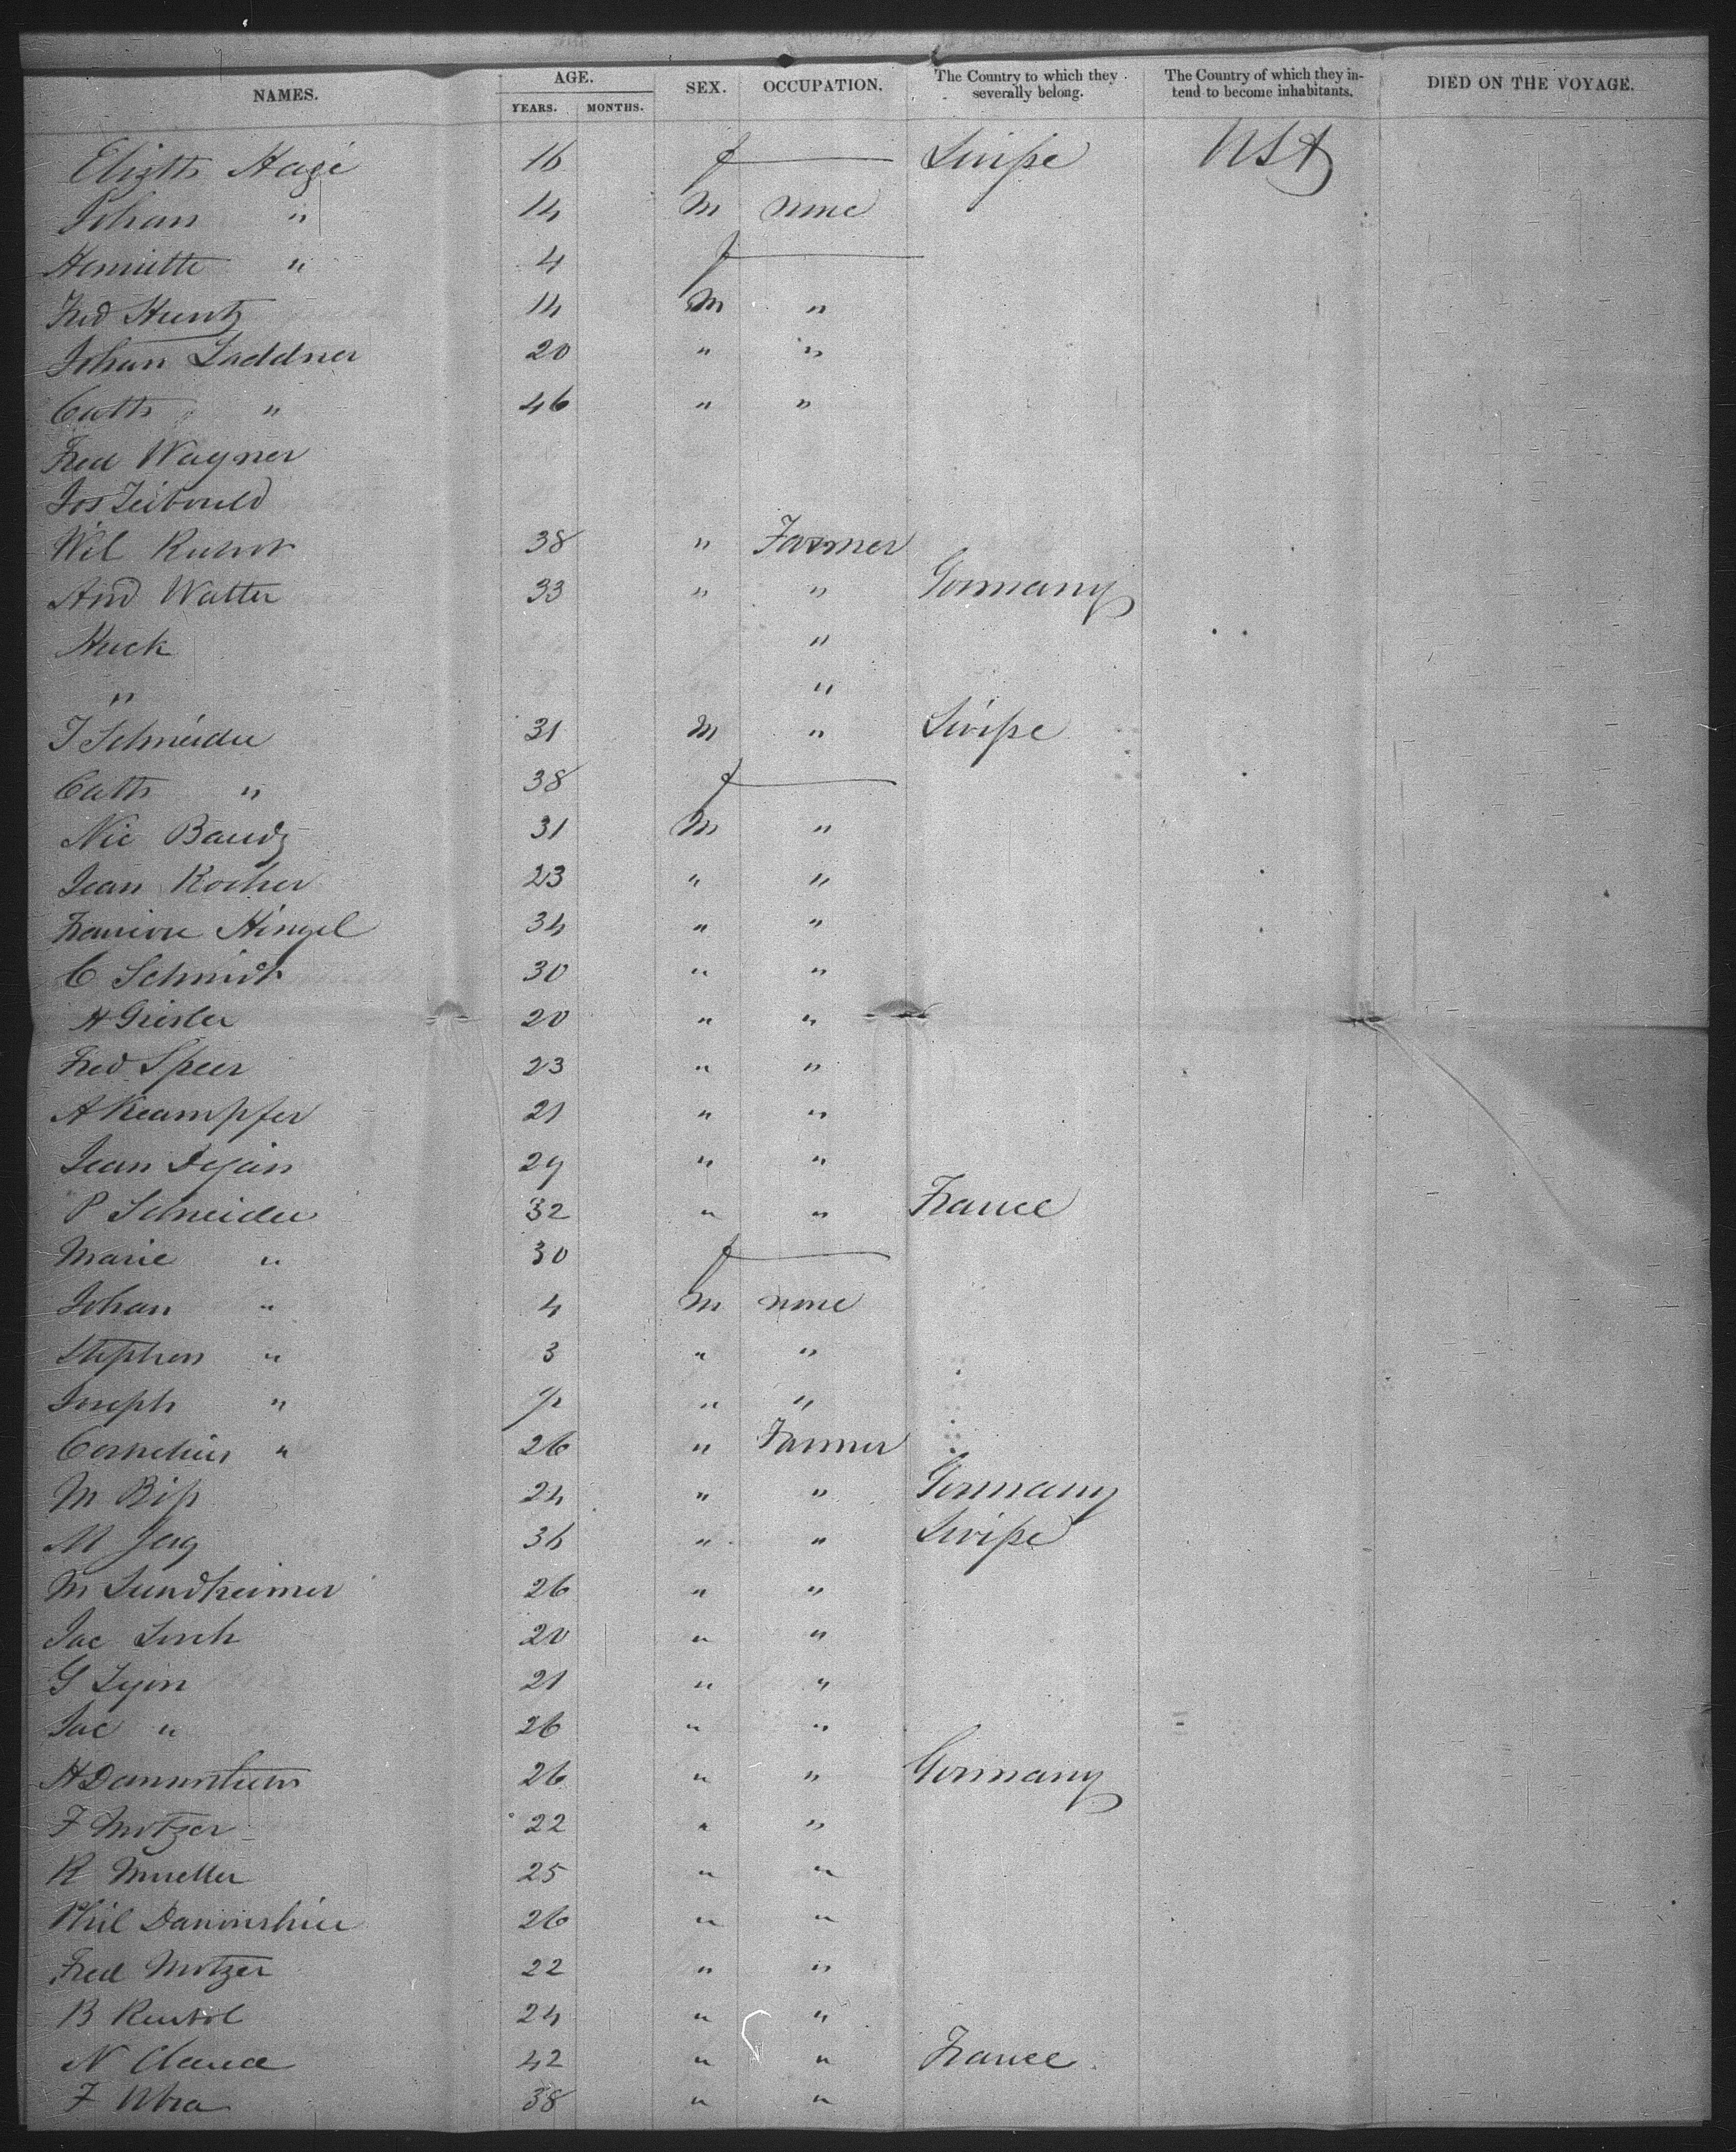 NAMES. AGE. YEARS. MONTHS. SEX. OCCUPATION. The Country to which they severally belong. The Country of which they intend to become inhabitants. DIED ON THE VOYAGE.
Elizth Hagé 16 f Swisse USA
Johan " 14 M none
Henriette " 4 f
Fred Huntz 14 M "
Johan Laddner 20 " "
Cath " 46 " "
Fred Wagner
Jos Leibould
Wil 38 " Farmer
And Walter 33 " " Germany
Huck "
" "
J Schneider 31 M " Swisse
Cath " 38 f
Nic Baudz 31 M "
Jean Kocher 23 " "
Hingel 34 " "
C Schmidt 30 " "
A Geisler 20 " "
Fred Speer 23 " "
A Keampfer 21 " "
Jean Dejain 29 " "
P Schneider 32 " " France
Marie " 30 f
Johan " 4 M none
Stephen " 3 " "
Joseph " " "
Cornelius " 26 " Farmer
M Biss 24 " " Germany
M Jag 36 " " Swisse
M Sundheimer 26 " "
Jac 20 " "
G Lyon 21 " "
Jac " 26 " "
H 26 " " Germany
F Motzer 22 " "
R Mueller 25 " "
Phil 26 " "
Fred Motzer 22 " "
B 24 " "
N Claude 42 " " France
F 38 " "